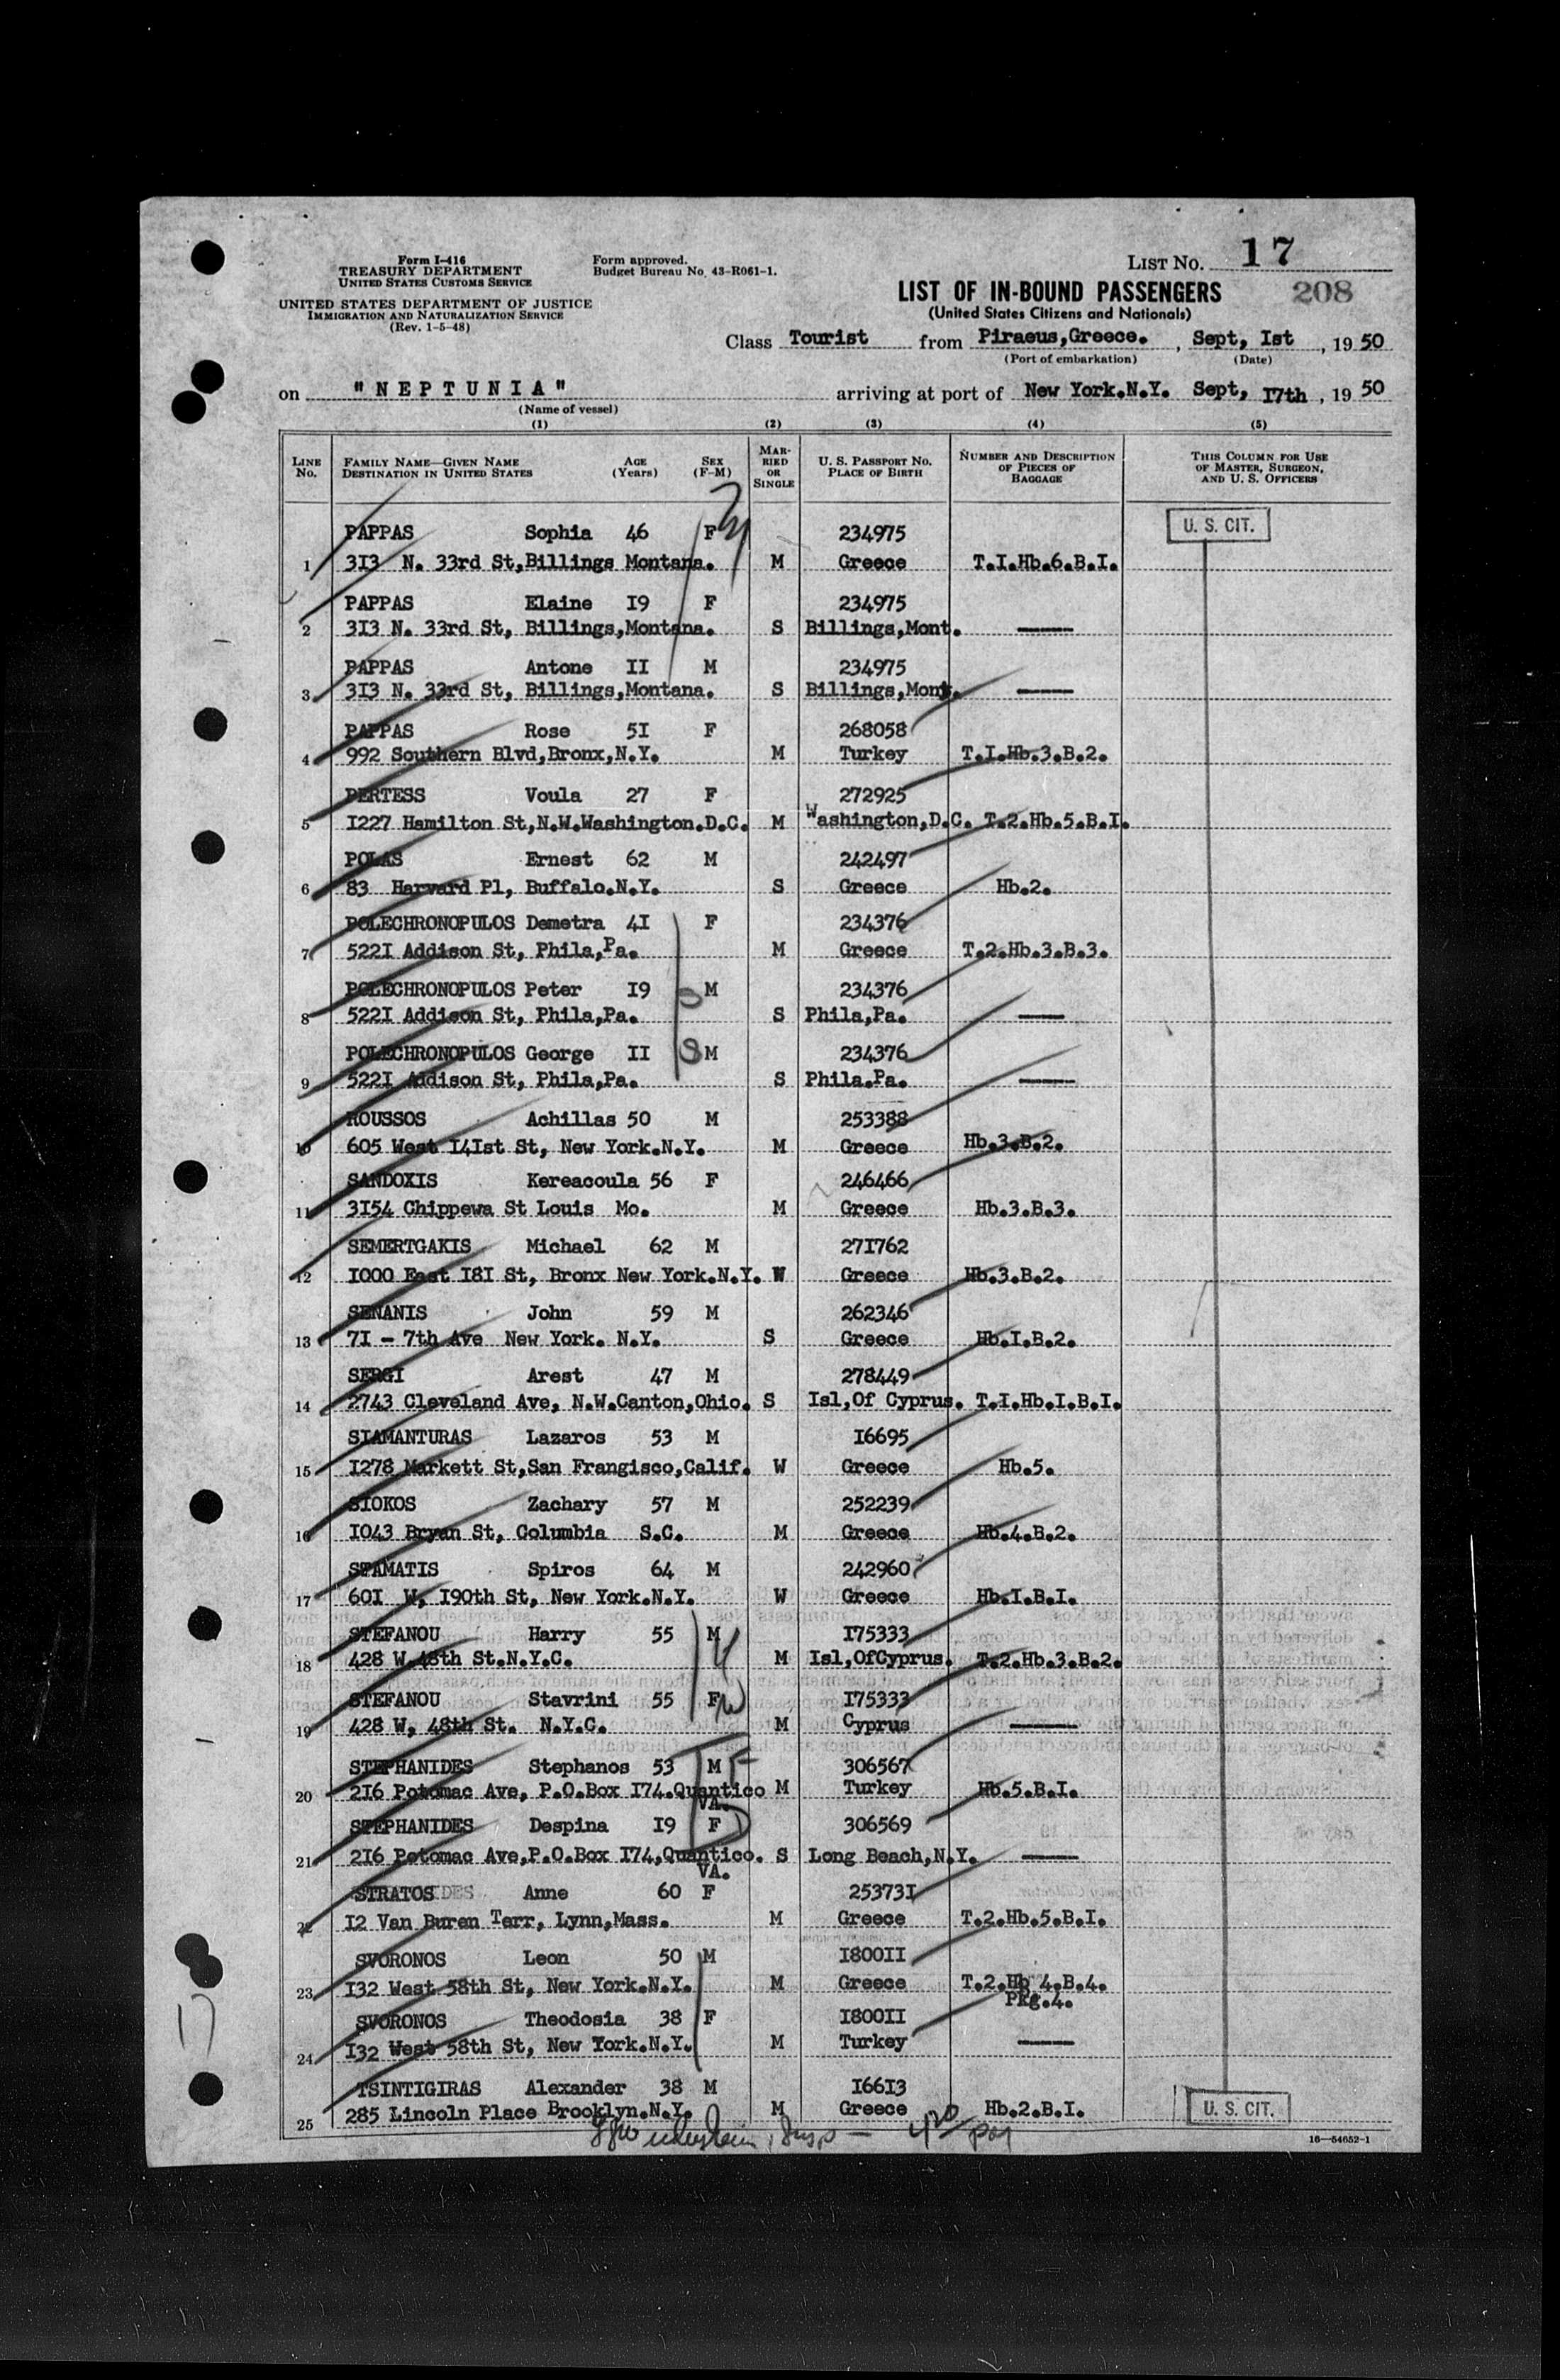 Form I-416
TREASURY DEPARTMENT
UNITED STATES CUSTOMS SERVICE
UNITED STATES DEPARTMENT OF JUSTICE
IMMIGRATION AND NATURALIZATION SERVICE
(Rev. 1-5-48)
Form approved.
Budget Bureau No. 43-R061-1.
LIST NO. 17
LIST OF IN-BOUND PASSENGERS 208
(United States Citizens and Nationals)
Class Tourist from Piraeus,Greece. , Sept, Ist , 19 50
(Port of embarkation) (Date)
on "NEPTUNIA" arriving at port of New York.N.Y. Sept, I7th , 19 50
(Name of vessel)
(1) (2) (3) (4) (5)
LINE NO. FAMILY NAME—GIVEN NAME DESTINATION IN UNITED STATES AGE (Years) SEX (F-M) MARRIED OR SINGLE U. S. PASSPORT NO. PLACE OF BIRTH NUMBER AND DESCRIPTION OF PIECES OF BAGGAGE THIS COLUMN FOR USE OF MASTER, SURGEON, AND U. S. OFFICERS
PAPPAS Sophia 46 F 234975 U. S. CIT.
1 3I3 N. 33rd St,Billings Montana. M Greece T.I.Hb.6.B.I.
PAPPAS Elaine I9 F 234975
2 3I3 N. 33rd St, Billings,Montana. S Billings,Mont. ——
PAPPAS Antone II M 234975
3 3I3 N. 33rd St, Billings,Montana. S Billings,Mont. ——
PAPPAS Rose 5I F 268058
4 992 Southern Blvd,Bronx,N.Y. M Turkey T.I.Hb.3.B.2.
PERTESS Voula 27 F 272925
5 I227 Hamilton St,N.W.Washington.D.C. M Washington,D.C. T.2.Hb.5.B.I.
POLAS Ernest 62 M 242497
6 83 Harvard Pl, Buffalo.N.Y. S Greece Hb.2.
POLECHRONOPULOS Demetra 4I F 234376
7 522I Addison St, Phila,Pa. M Greece T.2.Hb.3.B.3.
POLECHRONOPULOS Peter I9 M 234376
8 522I Addison St, Phila,Pa. S Phila,Pa. ——
POLECHRONOPULOS George II M 234376
9 522I Addison St, Phila,Pa. S Phila.Pa. ——
ROUSSOS Achillas 50 M 253388
10 605 West I4Ist St, New York.N.Y. M Greece Hb.3.B.2.
SANDOXIS Kereacoula 56 F 246466
11 3I54 Chippewa St Louis Mo. M Greece Hb.3.B.3.
SEMERTGAKIS Michael 62 M 27I762
12 I000 East I8I St, Bronx New York.N.Y. W Greece Hb.3.B.2.
SENANIS John 59 M 262346
13 7I - 7th Ave New York. N.Y. S Greece Hb.I.B.2.
SERGI Arest 47 M 278449
14 2743 Cleveland Ave, N.W.Canton,Ohio. S Isl,Of Cyprus. T.I.Hb.I.B.I.
SIAMANTURAS Lazaros 53 M I6695
15 I278 Markett St,San Frangisco,Calif. W Greece Hb.5.
SIOKOS Zachary 57 M 252239
16 I043 Bryan St, Columbia S.C. M Greece Hb.4.B.2.
STAMATIS Spiros 64 M 242960
17 60I W, I90th St, New York.N.Y. W Greece Hb.I.B.I.
STEFANOU Harry 55 M I75333
18 428 W.48th St.N.Y.C. M Isl,OfCyprus. T.2.Hb.3.B.2.
STEFANOU Stavrini 55 F I75333
19 428 W, 48th St. N.Y.C. M Cyprus ——
STEPHANIDES Stephanos 53 M 306567
20 2I6 Potomac Ave, P.O.Box I74.Quantico M Turkey Hb.5.B.I.
VA.
STEPHANIDES Despina I9 F 306569
21 2I6 Potomac Ave,P.O.Box I74,Quantico. S Long Beach,N.Y. ——
VA.
STRATOS Anne 60 F 25373I
22 I2 Van Buren Terr, Lynn,Mass. M Greece T.2.Hb.5.B.I.
SVORONOS Leon 50 M I800II
23 I32 West 58th St, New York.N.Y. M Greece T.2.Hb 4.B.4.
Pkg.4.
SVORONOS Theodosia 38 F I800II
24 I32 West 58th St, New York.N.Y. M Turkey ——
TSINTIGIRAS Alexander 38 M I66I3
25 285 Lincoln Place Brooklyn.N.Y. M Greece Hb.2.B.I. U. S. CIT.
16—54652-1